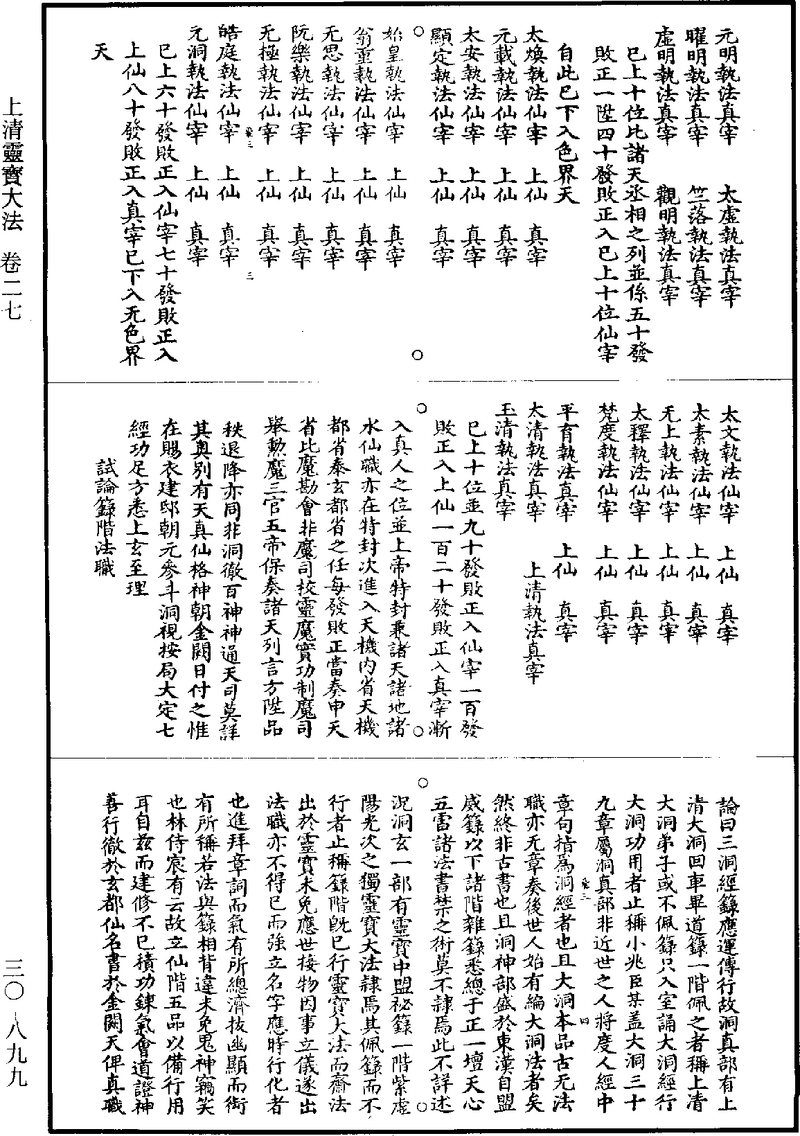 上清靈寶大法　卷二七
三〇·八九九
元明執法真宰　太虛執法真宰
曜明執法真宰　竺落執法真宰
虛明執法真宰　觀明執法真宰
已上十位比諸天丞相之列並係五十發
敗正一陞四十發敗正入已上十位仙宰
自此已下入色界天
太煥執法仙宰　上仙　真宰
元載執法仙宰　上仙　真宰
太安執法仙宰　上仙　真宰
顯定執法仙宰　上仙　真宰
始皇執法仙宰　上仙　真宰
翁重執法仙宰　上仙　真宰
无思執法仙宰　上仙　真宰
阮樂執法仙宰　上仙　真宰
无極執法仙宰　上仙　真宰
皓庭執法仙宰　上仙　真宰
元洞執法仙宰　上仙　真宰
已上六十發敗正入仙宰七十發敗正入
上仙八十發敗正入真宰已下入无色界
天
太文執法仙宰　上仙　真宰
太素執法仙宰　上仙　真宰
无上執法仙宰　上仙　真宰
太釋執法仙宰　上仙　真宰
梵度執法仙宰　上仙　真宰
平育執法真宰　上仙　真宰
太清執法真宰　上清執法真宰
玉清執法真宰
已上十位並九十發敗正入仙宰一百發
敗正入上仙一百二十發敗正入真宰漸
入真人之位並上帝特封兼諸天諸地諸
水仙職亦在特封次進入天機內省天機
都省泰玄都省之任每發敗正當奏申天
省比魔勘會非魔司校靈魔實功制魔司
舉勳魔三官五帝保奏諸天列言方陞品
秩退降亦同非洞徹百神神通天司莫詳
其奧別有天真仙格神朝金闕日付之惟
在賜衣建邸朝元參斗洞視按局大定七
經功足方悉上玄至理
試論籙階法職
論曰三洞經籙應運傳行故洞真部有上
清大洞回車畢道籙一階佩之者稱上清
大洞弟子或不佩籙只入室誦大洞經行
大洞功用者止稱小兆臣某蓋大洞三十
九章屬洞真部非近世之人將度人經中
章句指為洞經者也且大洞本品古无法
職亦无章奏後世人始有編大洞法者矣
然終非古書也且洞神部盛於東漢自盟
威籙以下諸階雜籙悉總于正一壇天心
五雷諸法書禁之術莫不隸焉此不詳述
況洞玄一部有靈寶中盟祕籙一階紫虛
陽光次之獨靈寶大法隸焉其佩籙而不
行者止稱籙階既已行靈寶大法而齋法
出於靈寶未免應世接物因事立儀遂出
法職亦不得已而強立名字應時行化者
也進拜章詞而氣有所總濟拔幽顯而銜
有所稱若法與籙相背違未免鬼神竊笑
也林侍宸有云故立仙階五品以備行用
耳自茲而建修不已積功鍊氣會道證神
善行徹於玄都仙名書於金闕天俾真職